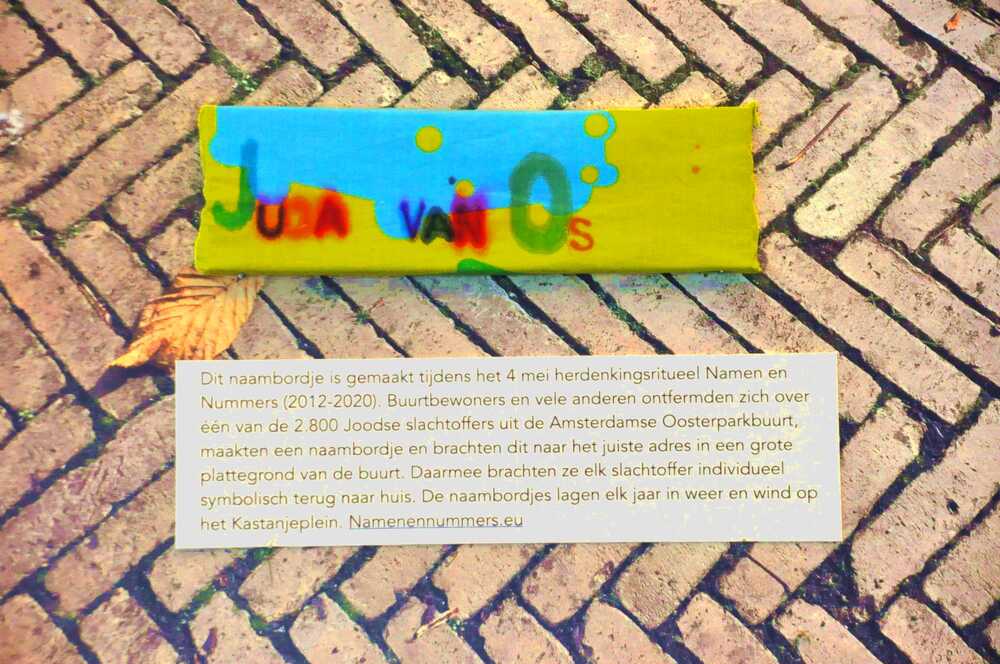 Juda van Os
Dit naambordje is gemaakt tijdens het 4 mei herdenkingsritueel Namen en
Nummers (2012-2020). Buurtbewoners en vele anderen ontfermden zich over
één van de 2.800 Joodse slachtoffers uit de Amsterdamse Oosterparkbuurt,
maakten een naambordje en brachten dit naar het juiste adres in een grote
plattegrond van de buurt. Daarmee brachten ze elk slachtoffer individueel
symbolisch terug naar huis. De naambordjes lagen elk jaar in weer en wind op
het Kastanjeplein. Namenennummers.eu